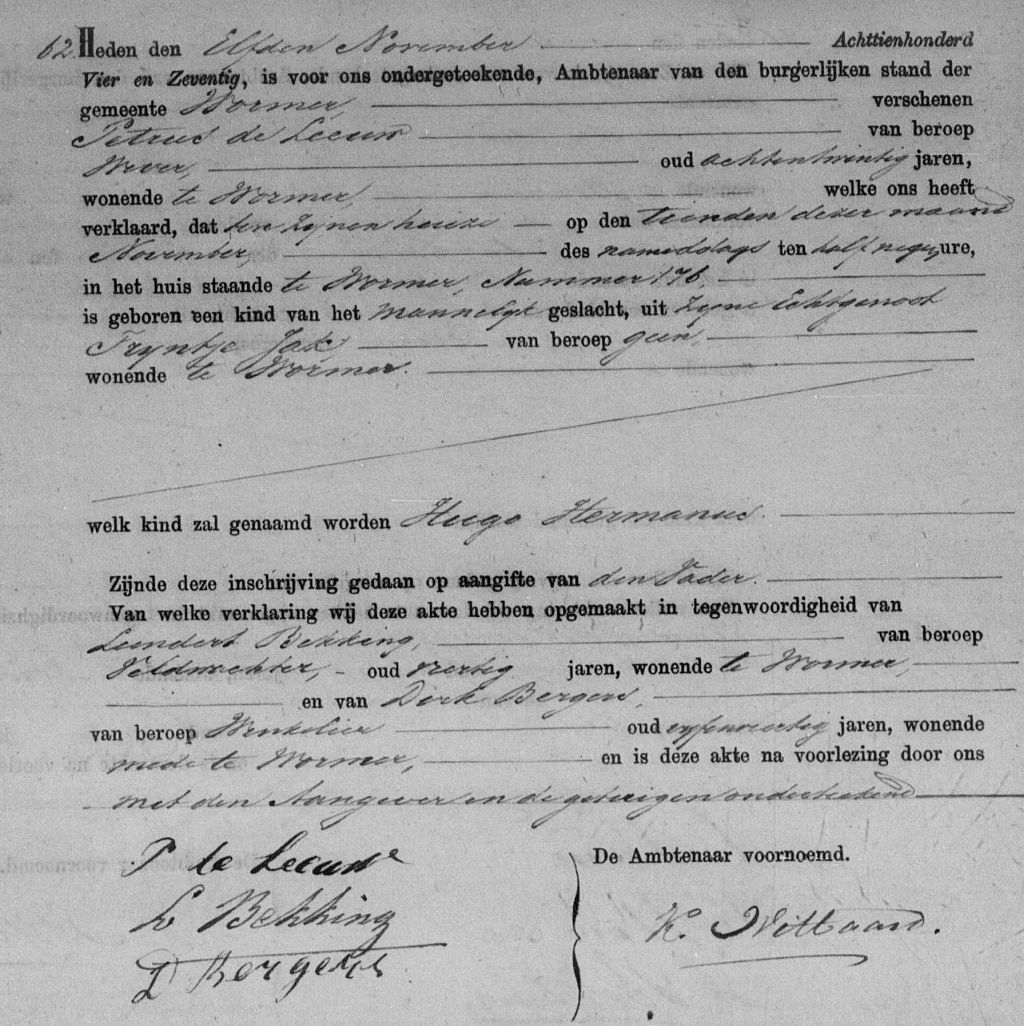 62. Heden den Elfden November Achttienhonderd
Vier en Zeventig, is voor ons ondergeteekende, Ambtenaar van den burgerlijken stand der
gemeente Wormer, verschenen
Petrus de Leeuw van beroep
Wever, oud achtentwintig jaren,
wonende te Wormer, welke ons heeft
verklaard, dat ten zijnen huize op den tienden dezer maand
November, des nameddags ten half negen ure,
in het huis staande te Wormer, Nummer 176,
is geboren een kind van het Mannelijk geslacht, uit zijne Echtgenoot
Tryntje Jak van beroep geen,
wonende te Wormer.
welk kind zal genaamd worden Hugo Hermanus.
Zijnde deze inschrijving gedaan op aangifte van den Vader.
Van welke verklaring wij deze akte hebben opgemaakt in tegenwoordigheid van
Leendert Bekking, van beroep
Veldwachter, oud veertig jaren, wonende te Wormer,
en van Dirk Bergers,
van beroep Winkelier oud jaren, wonende
mede te Wormer, en is deze akte na voorlezing door ons
met den Aangever en de getuigen onderteekend
De Ambtenaar voornoemd.
P de Leeuw
L Bekking
D Bergers
K.